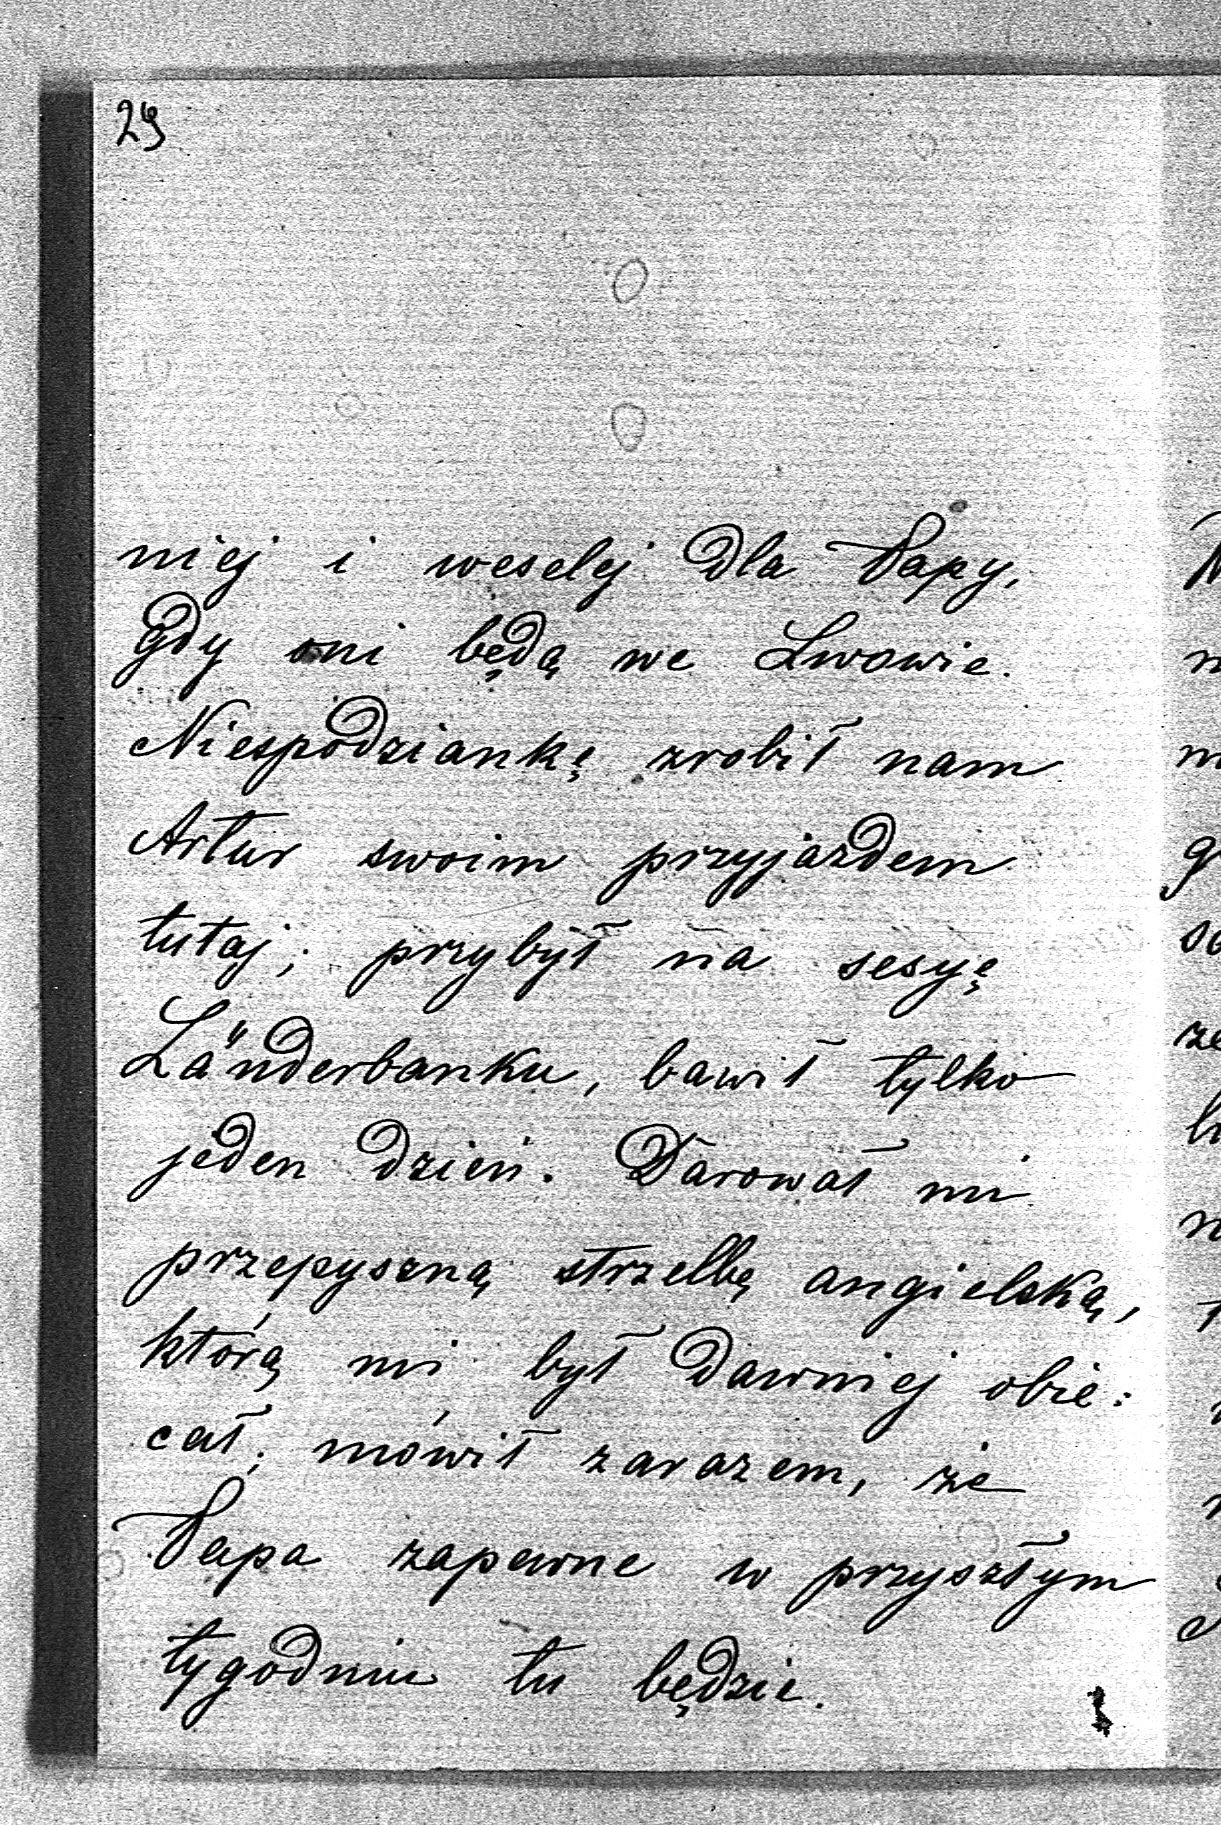 29
niej i weselej dla Papy,
gdy oni będą we Lwowie.
Niespodziankę zrobił nam
Artur swoim przyjazdem
tutaj; przybył na sesyę
Länderbanku, bawił tylko
jeden dzień. Darował mi
przepyszną strzelbę angielską,
którą mi był dawniej obie:
cał; mówił zarazem, że
Papa zapewne w przyszłym
tygodniu tu będzie.